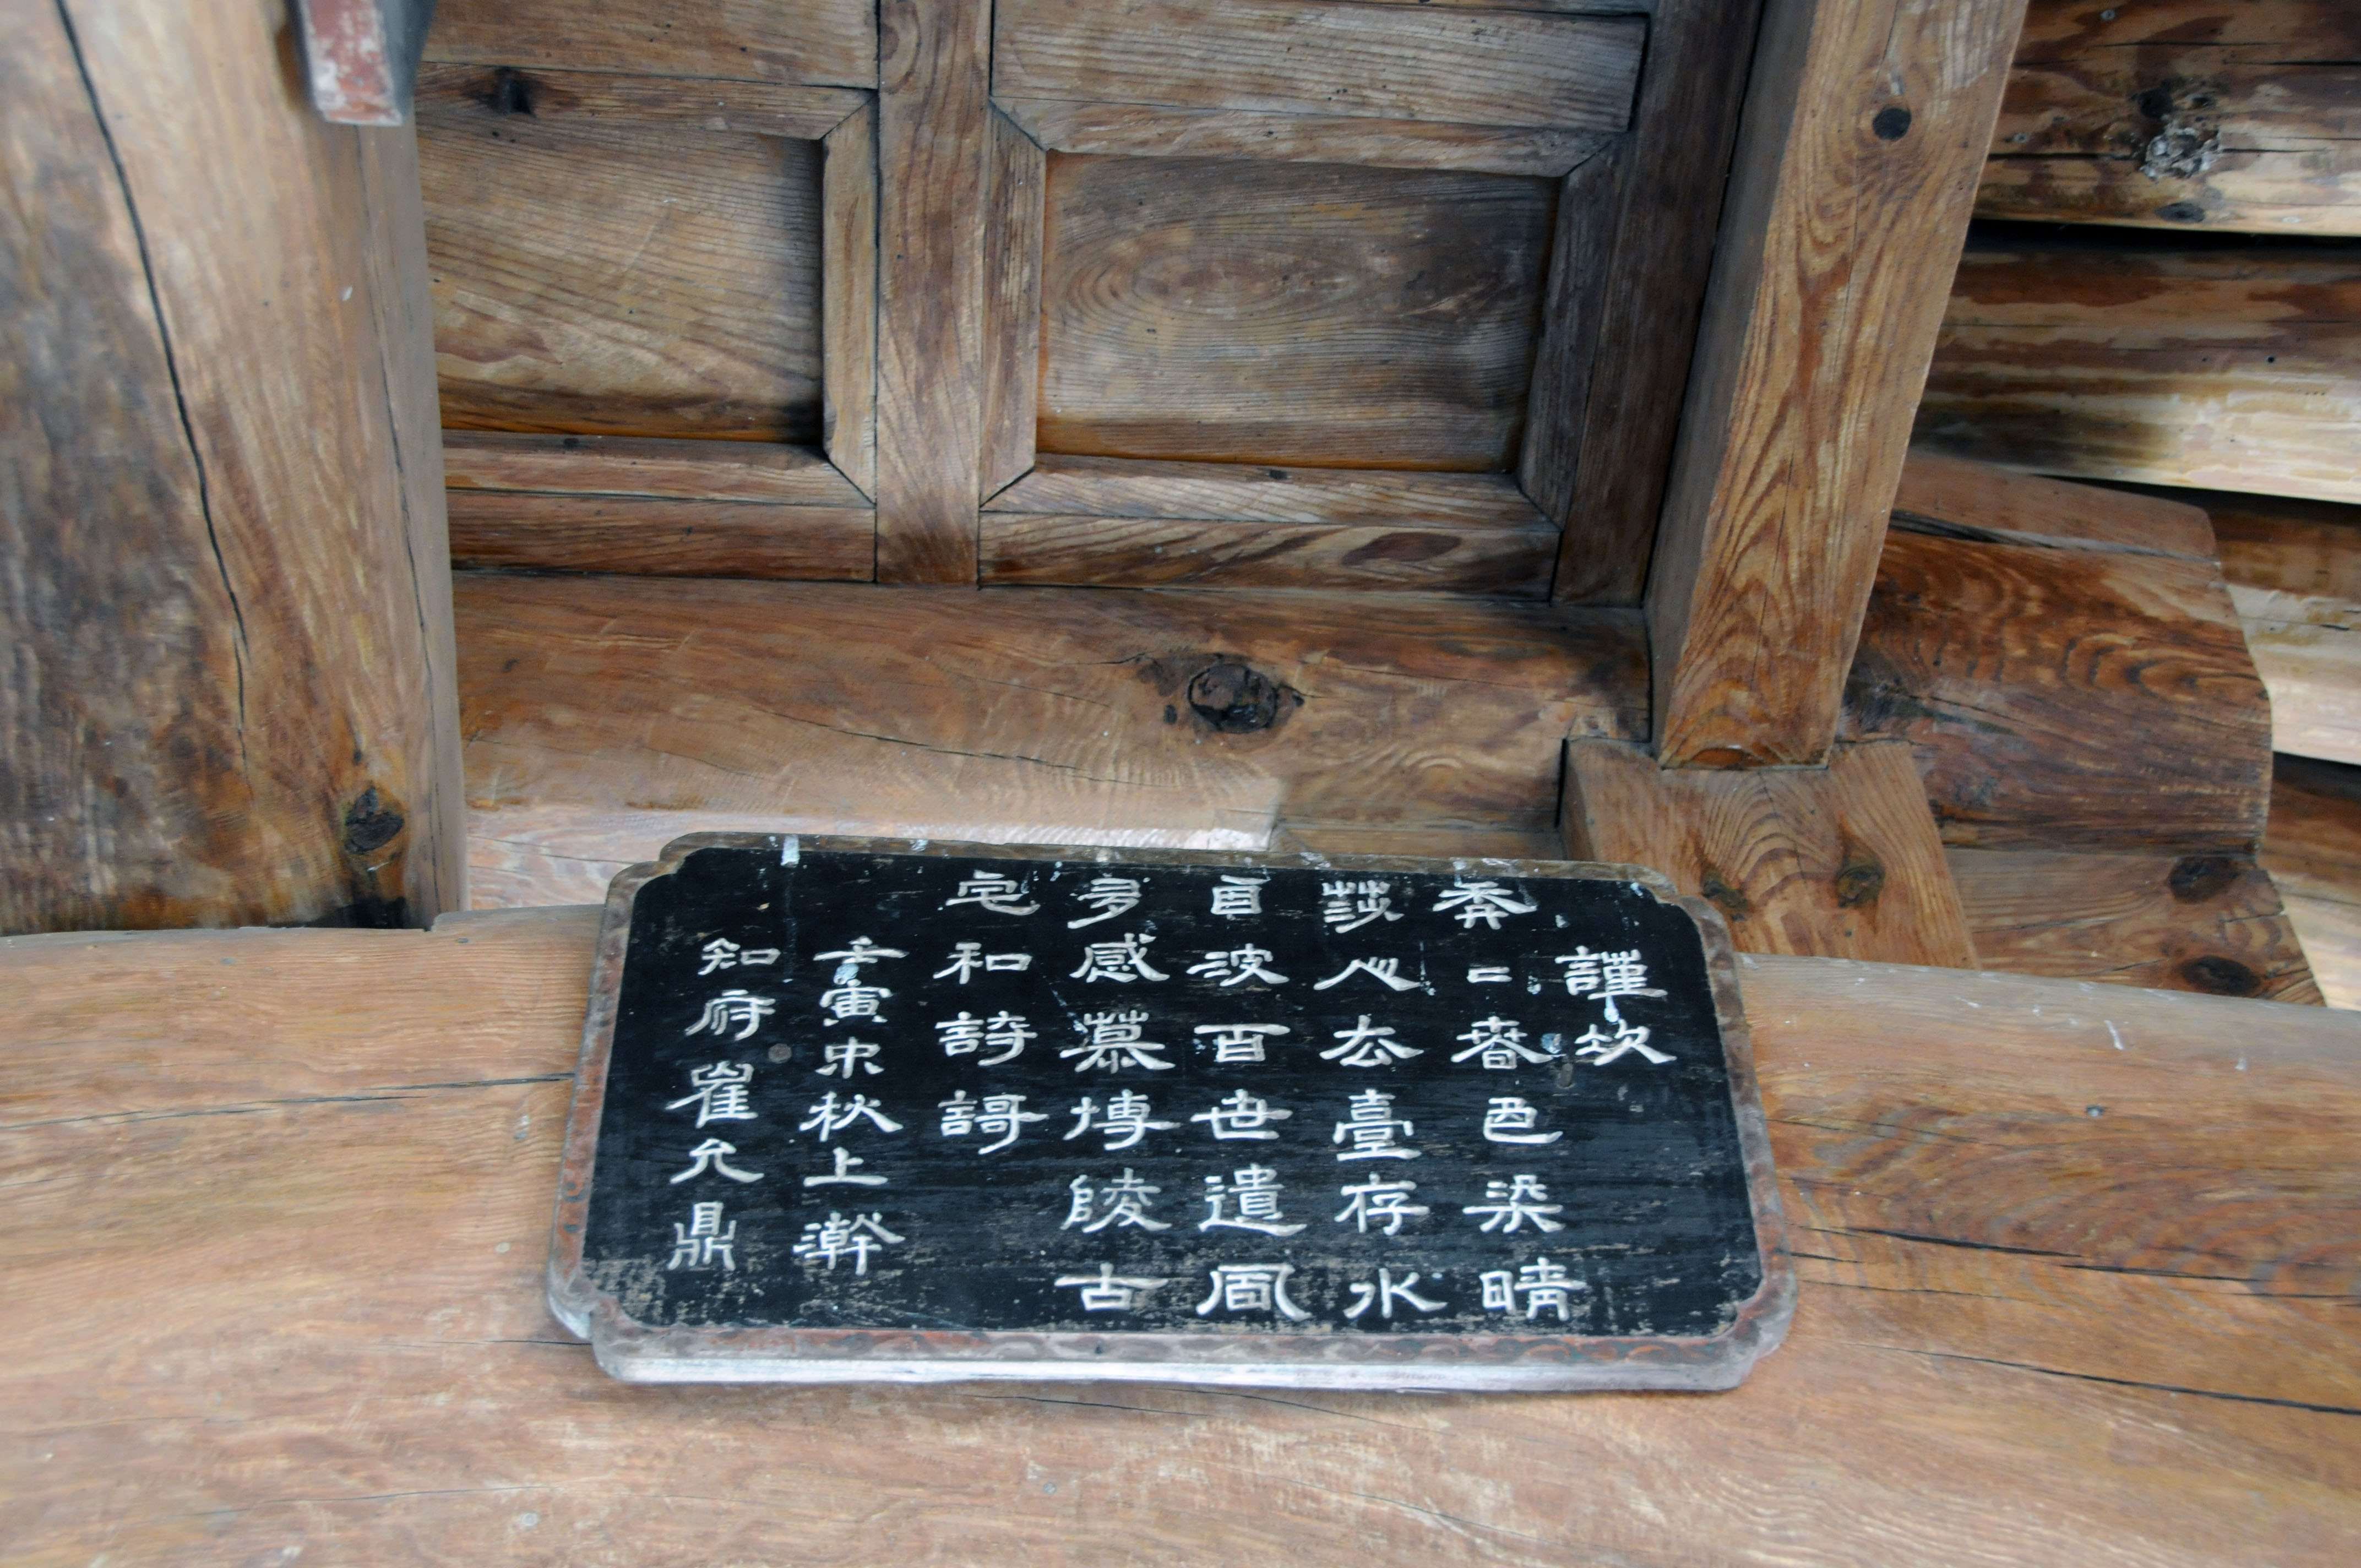 謹次
二春色染晴
莎人去臺存水
自波百世遺風
多感慕博陵古
宅和詩謌
壬寅中秋上澣
知府崔允鼎